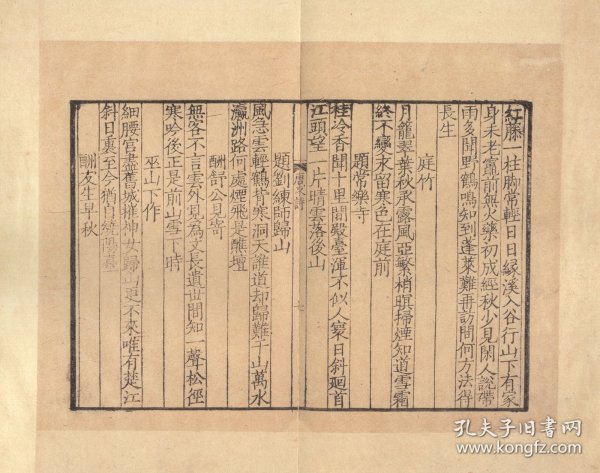 紅藤一柱脚常輕日日緣溪入谷行山下有家
身未老竈前無火藥初成經秋少見閑人說帶
雨多聞野鶴鳴知到蓬萊難再訪問何方法得
長生
庭竹
月籠翠葉秋承露風亞繁梢暝掃煙知道雪霜
終不變永留寒色在庭前
題常樂寺
桂冷香聞十里間殿臺渾不似人寰日斜迴首
江頭望一片晴雲落後山
唐求詩
七
題劉鍊師歸山
風急雲輕鶴背寒洞天誰道却歸難千山萬水
瀛洲路何處煙飛是醮壇
酬舒公見寄
無客不言雲外見為文長遣世間知一聲松徑
寒吟後正是前山雪下時
巫山下作
細腰宮盡舊城摧神女歸山更不來唯有楚江
斜日裏至今猶自繞陽臺
酬友生早秋
孔夫子旧书网
www.kongfz.com